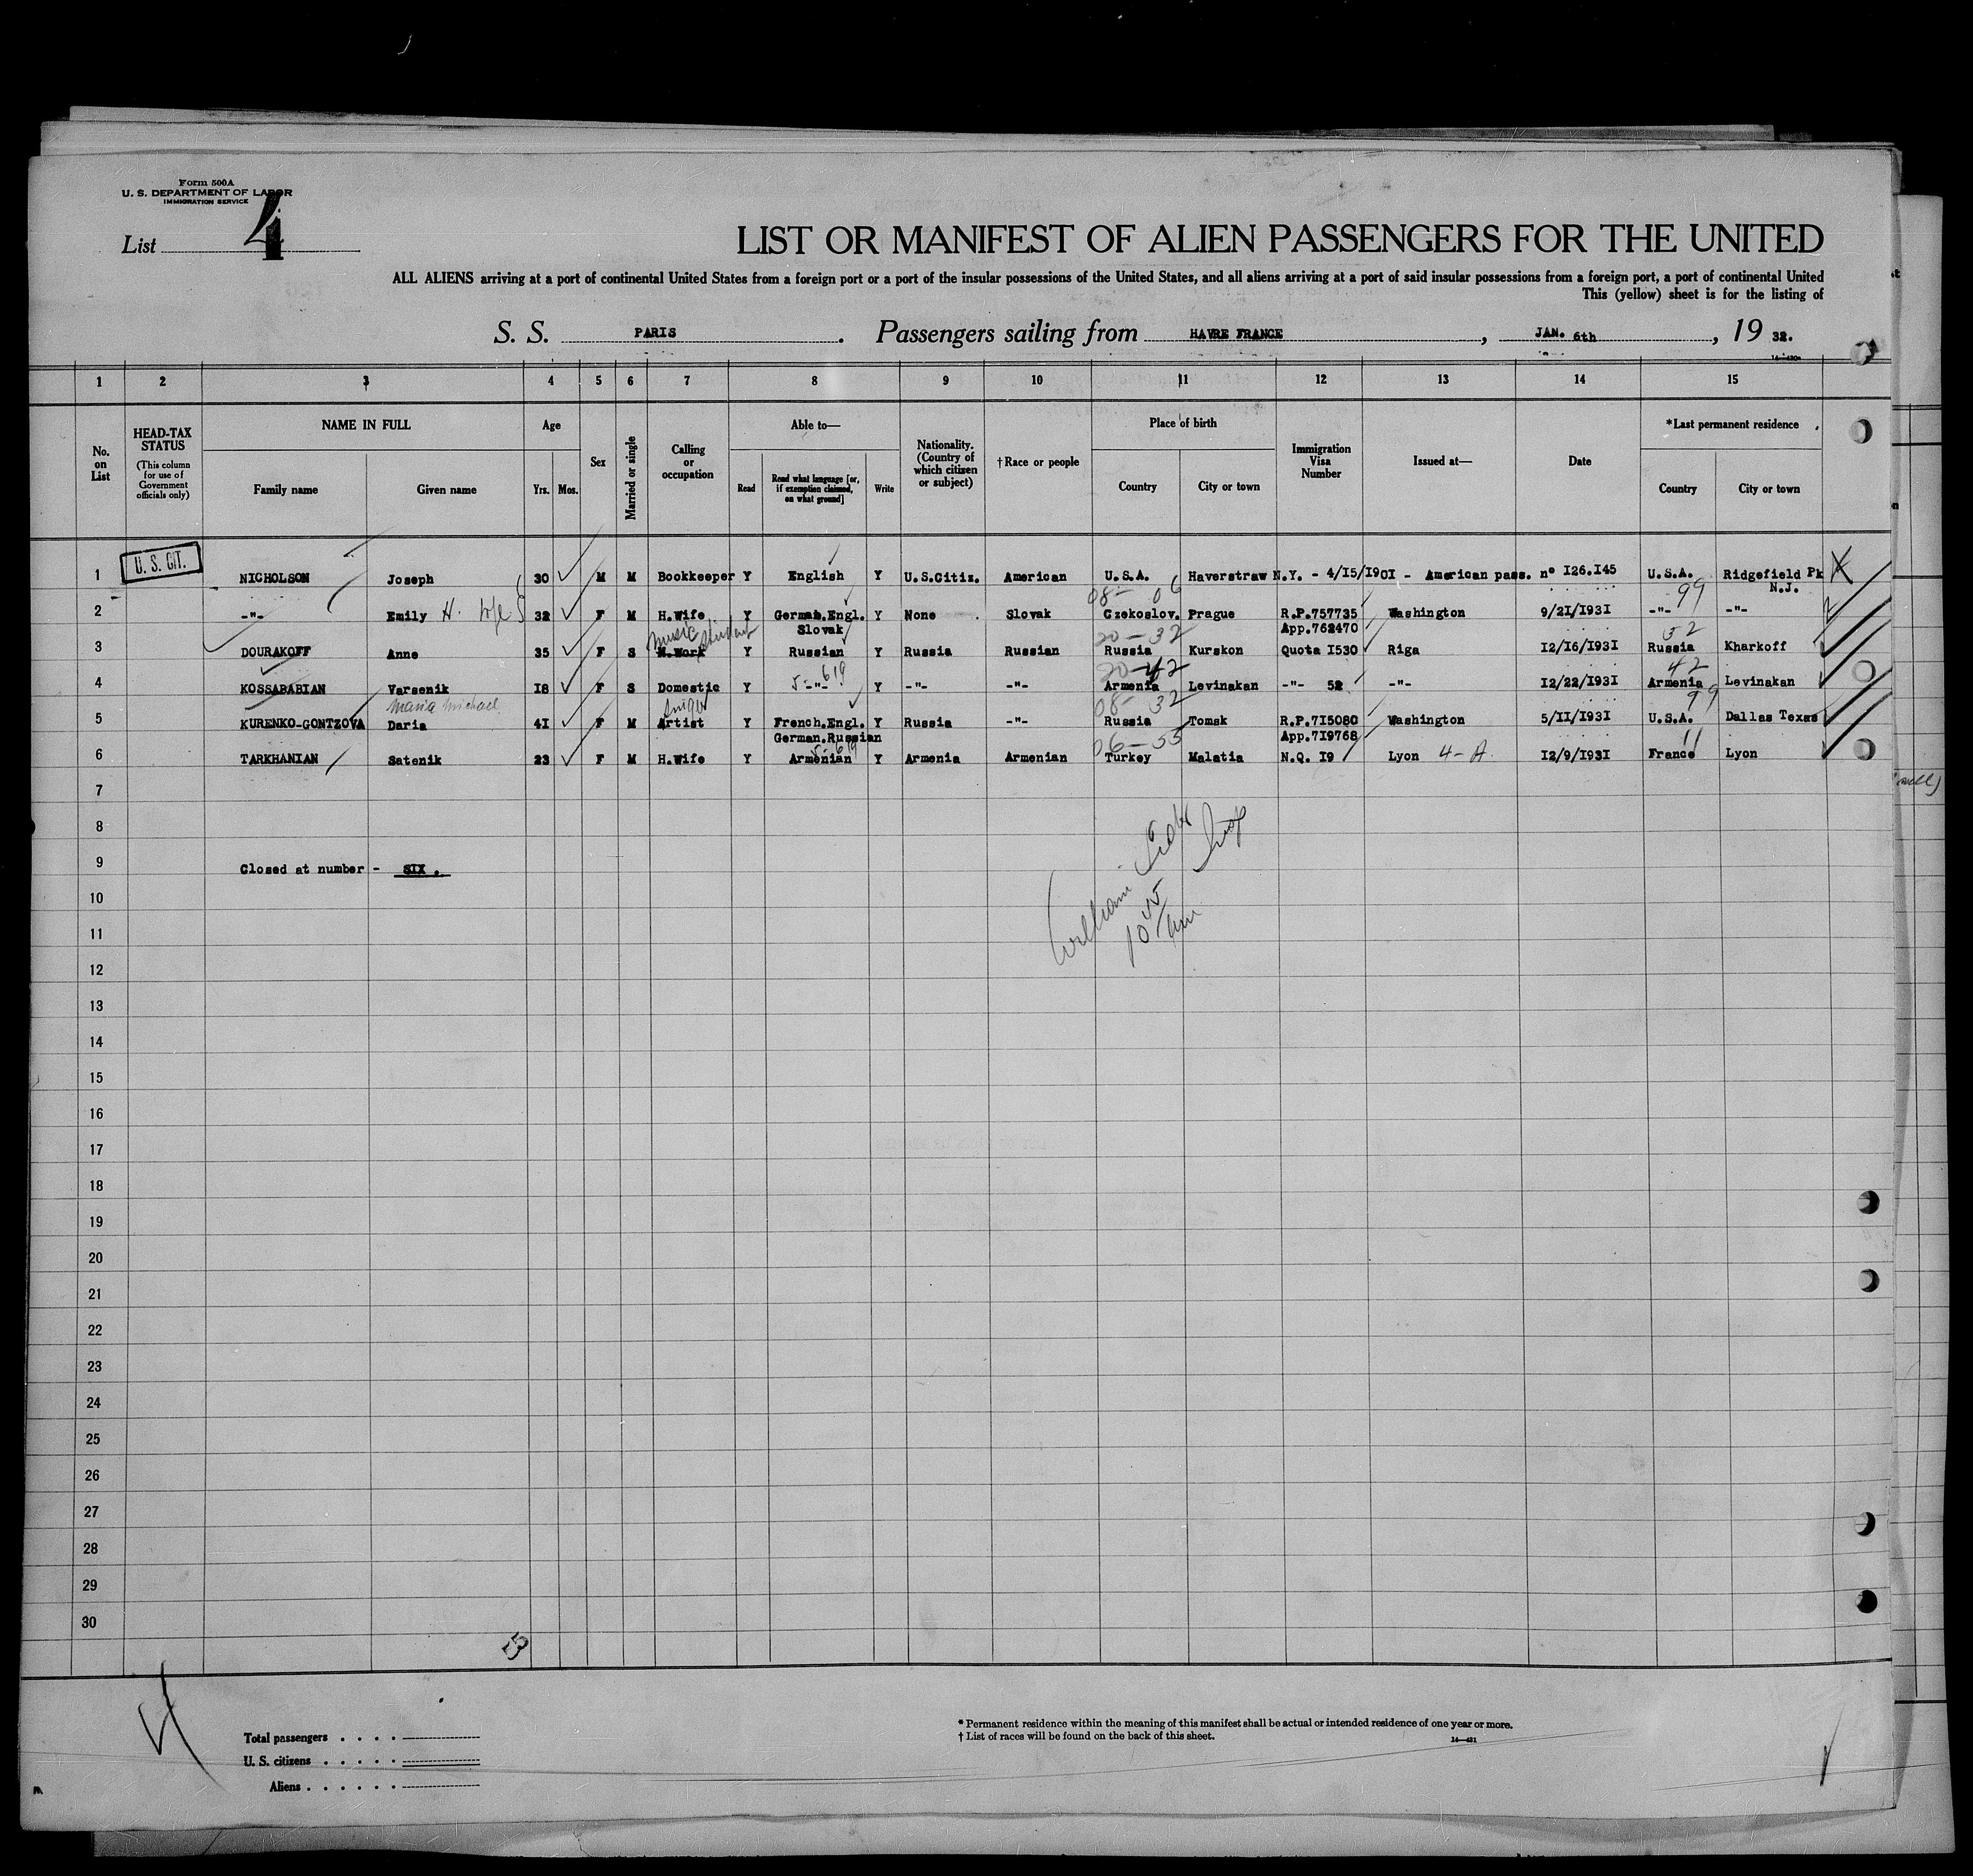 Form 500A
U. S. DEPARTMENT OF LABOR
IMMIGRATION SERVICE
List 4
LIST OR MANIFEST OF ALIEN PASSENGERS FOR THE UNITED
ALL ALIENS arriving at a port of continental United States from a foreign port or a port of the insular possessions of the United States, and all aliens arriving at a port of said insular possessions from a foreign port, a port of continental United
This (yellow) sheet is for the listing of
S. S. PARIS. Passengers sailing from HAVRE FRANCE, JAN. 6th, 19 32.
1 2 3 4 5 6 7 8 9 10 11 12 13 14 15
No. on List
HEAD-TAX STATUS (This column for use of Government officials only)
NAME IN FULL
Family name Given name
Age
Yrs. Mos.
Sex
Married or single
Calling or occupation
Able to—
Read Read what language [or, if exemption claimed, on what ground] Write
Nationality. (Country of which citizen or subject)
†Race or people
Place of birth
Country City or town
Immigration Visa Number
Issued at—
Date
*Last permanent residence
Country City or town
U. S. CIT.
1 NICHOLSON Joseph 30 M M Bookkeeper Y English Y U.S.Citiz. American U.S.A. Haverstraw N.Y. - 4/15/I90I - American pass. n° I26.I45 U.S.A. Ridgefield Pk
N.J.
08- 06 99
2 -"- Emily H. 32 F M H.Wife Y German.Engl. Y None Slovak Czekoslov. Prague R.P.757735 Washington 9/2I/I93I -"- -"-
Slovak App.762470
music student 20-32 32
3 DOURAKOFF Anne 35 F S M.Work Y Russian Y Russia Russian Russia Kurskon Quota I530 Riga I2/I6/I93I Russia Kharkoff
5-619 20-42 42
4 KOSSABABIAN Varsenik I8 F S Domestic Y -"- Y -"- -"- Armenia Levinakan -"- 52 -"- I2/22/I93I Armenia Levinakan
Maria Michael Singer 08- 32 99
5 KURENKO-GONTZOVA Daria 4I F M Artist Y French.Engl. Y Russia -"- Russia Tomsk R.P.7I5080 Washington 5/II/I93I U.S.A. Dallas Texas
German.Russian App.7I9768
5-619 06-55 11
6 TARKHANIAN Satenik 23 F M H.Wife Y Armenian Y Armenia Armenian Turkey Malatia N.Q. I9 Lyon 4-A. I2/9/I93I France Lyon
7
8
9 Closed at number - SIX.
William
10 45
10
11
12
13
14
15
16
17
18
19
20
21
22
23
24
25
26
27
28
29
30
53
Total passengers
U. S. citizens
Aliens
* Permanent residence within the meaning of this manifest shall be actual or intended residence of one year or more.
† List of races will be found on the back of this sheet.
14—431